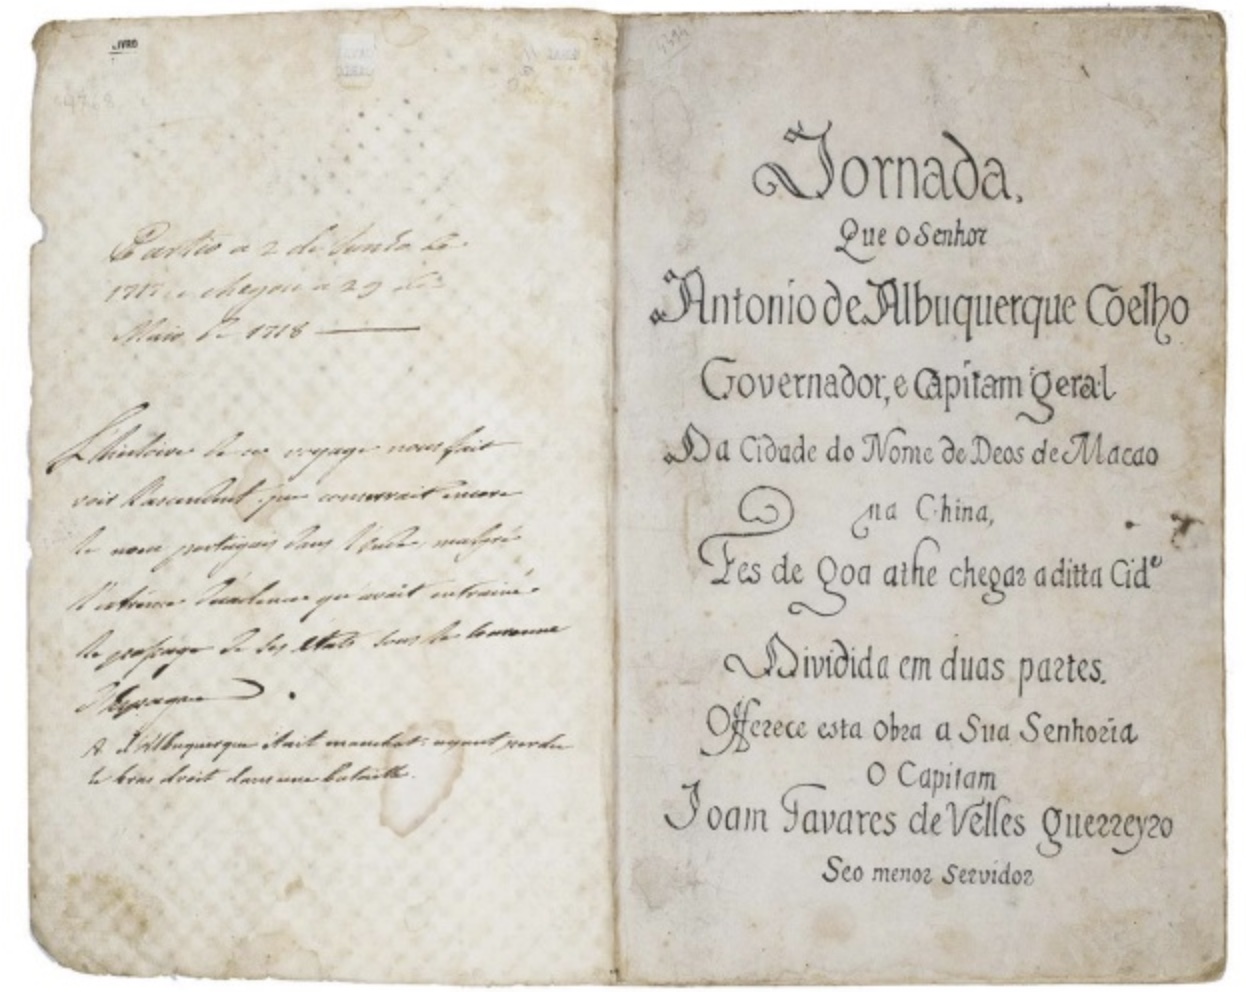 LIVRO
Partio a 2 de Junho de
1717 e chegou a 29 de
Maio de 1718
L'histoire de ce voyage nous fait
voir l'ascendant que conservait encore
le nom portugais dans l'Inde, malgré
l'extrême décadence qu'avait entrainé
le passage de ses états sous la couronne
d'Espagne.
A. d'Albuquerque était manchot: ayant perdu
le bras droit dans une bataille.
Jornada,
Que o Senhor
Antonio de Albuquerque Coelho
Governador, e Capitam geral
Da Cidade do Nome de Deos de Macao
na China,
Fes de Goa athe chegar a ditta Cidᵉ
Dividida em duas partes.
Offerece esta obra a Sua Senhoria
O Capitam
Joam Tavares de Velles Guerreyro
Seo menor Servidor